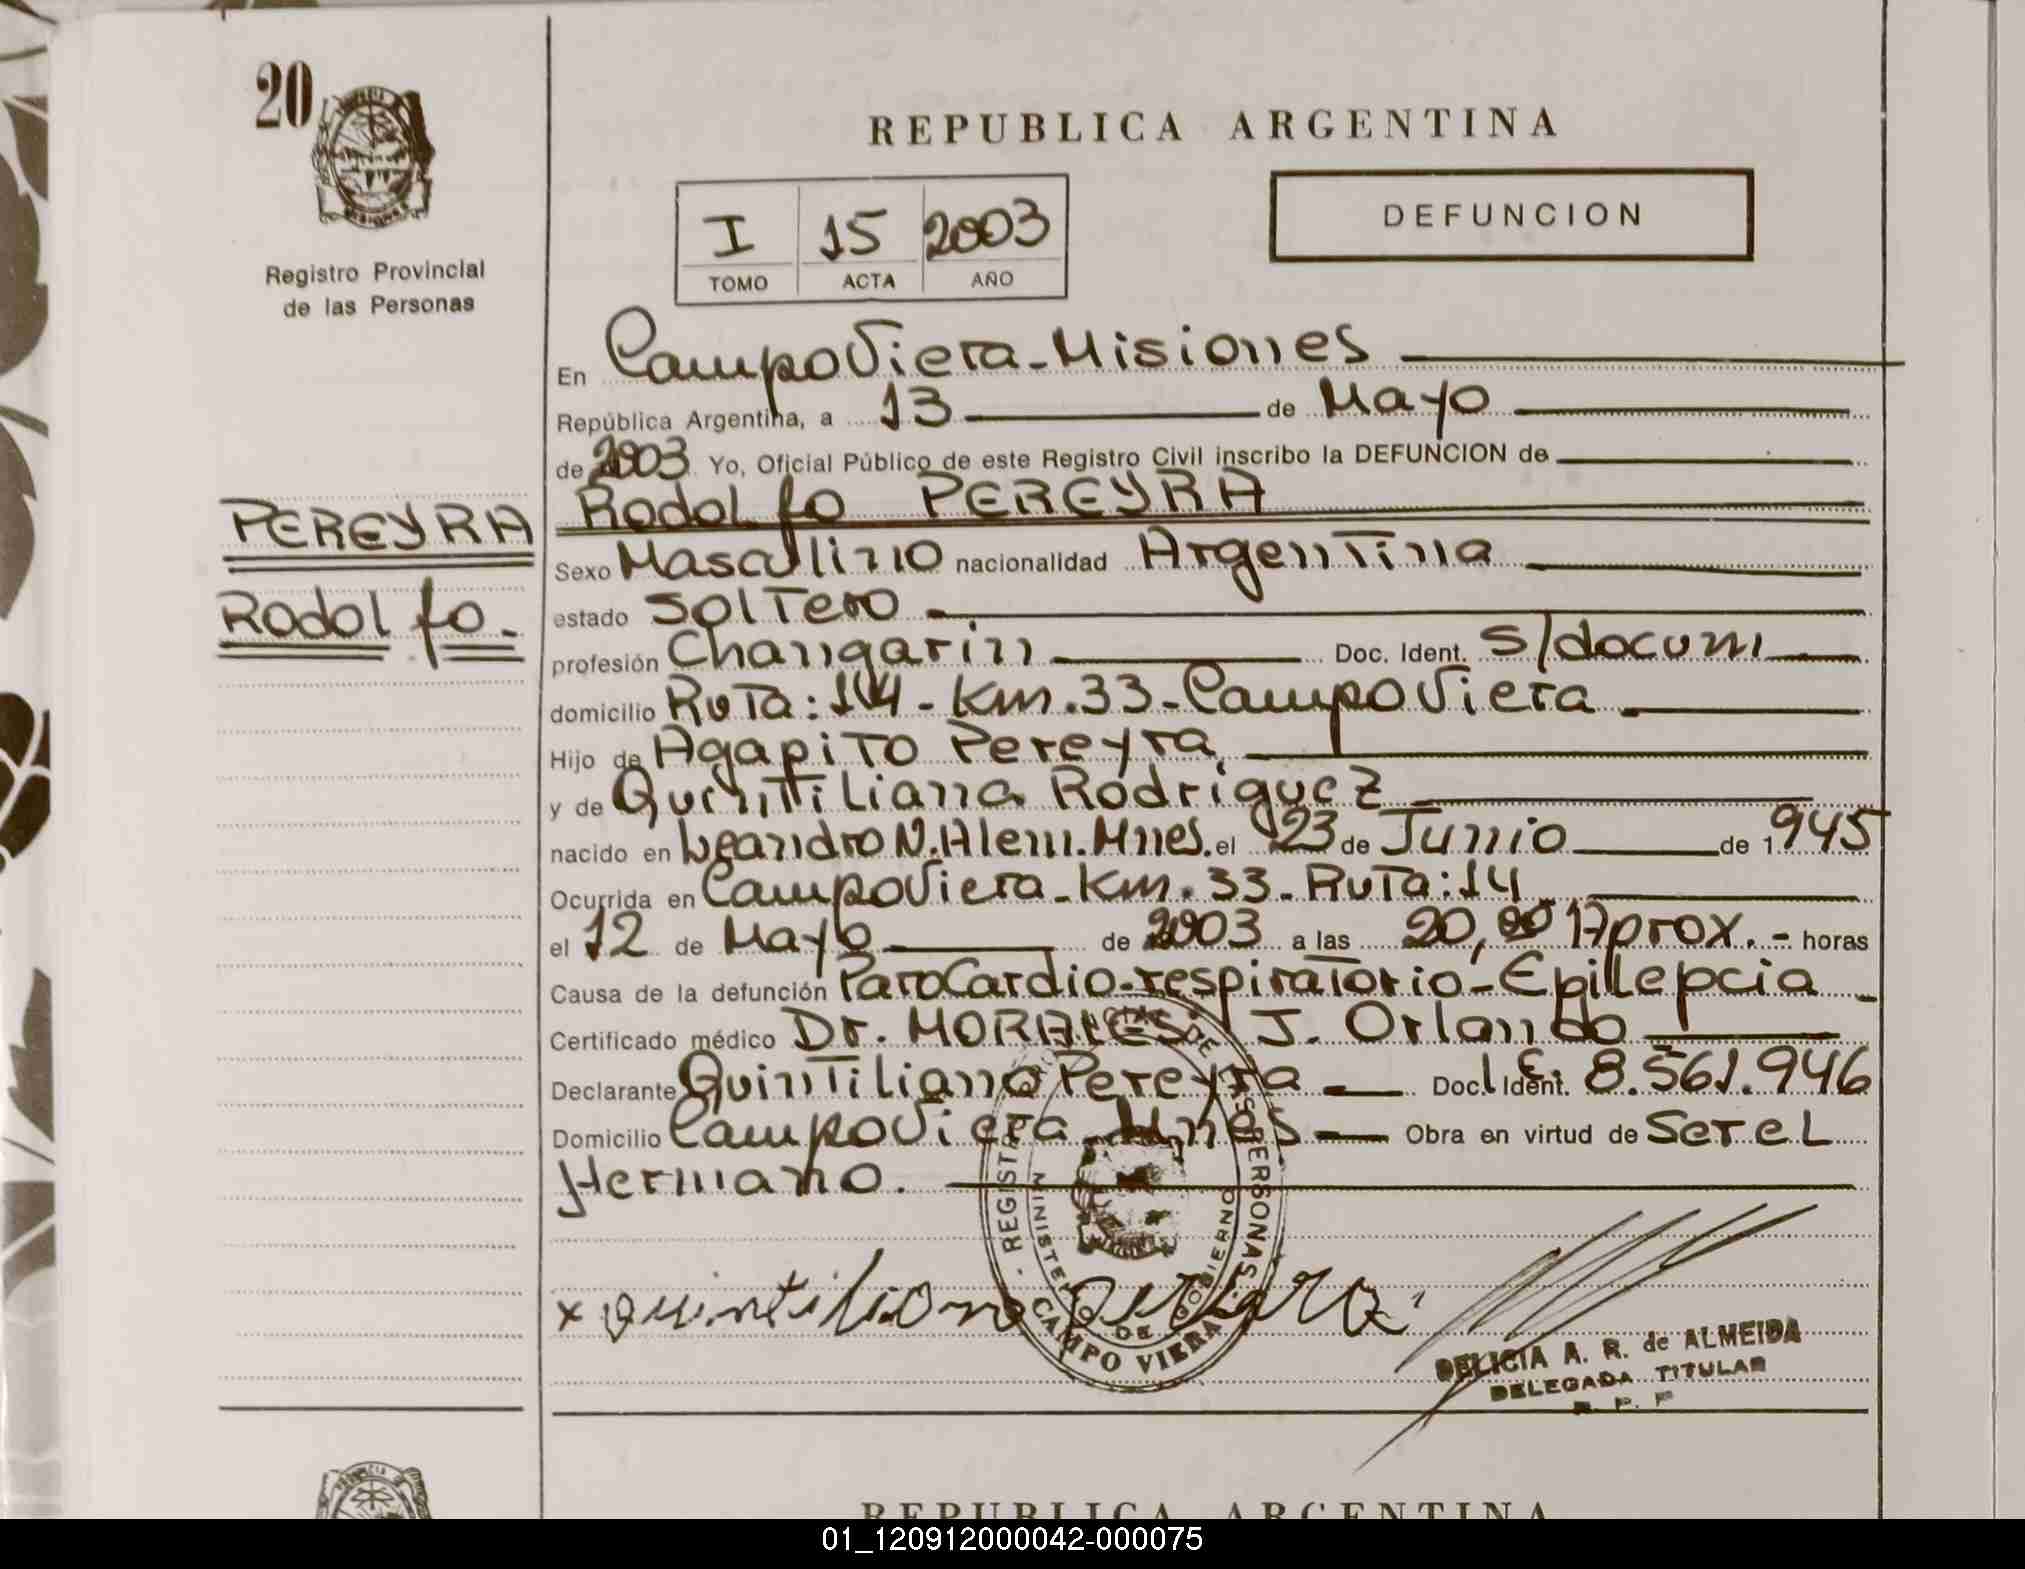 20
Registro Provincial
de las Personas
PEREYRA
Rodolfo.-
REPUBLICA ARGENTINA
I 15 2003
TOMO ACTA AÑO
DEFUNCION
En Campo Viera-Misiones
República Argentina, a 13 de Mayo
de 2003 Yo, Oficial Público de este Registro Civil inscribo la DEFUNCION de
Rodolfo PEREYRA
Sexo Masculino nacionalidad Argentina
estado Soltero -
profesión Changarin Doc. Ident. S/docum
domicilio Ruta: 14 - Km. 33 - Campo Viera -
Hijo de Agapito Pereyra
y de Quintiliana Rodriguez
nacido en Leandro N. Alem. Mnes. el 23 de Junio de 1.945
Ocurrida en Campo Viera - Km. 33 - Ruta: 14
el 12 de Mayo de 2003 a las 20,00 Aprox. - horas
Causa de la defunción Paro Cardio-respiratorio - Epillepcia -
Certificado médico Dr. MORALES J. Orlando
Declarante Quintiliano Pereyra - Doc. Ident. L.E. 8.561.946
Domicilio Campo Viera Mnes - Obra en virtud de Ser el
Hermano.
x quintiliano pereyra
REGISTRO PERSONAS
MINISTERIO DE GOBIERNO
CAMPO VIERA
DELICIA A. R. de ALMEIDA
DELEGADA TITULAR
R. P. P
REPUBLICA ARGENTINA
01_120912000042-000075